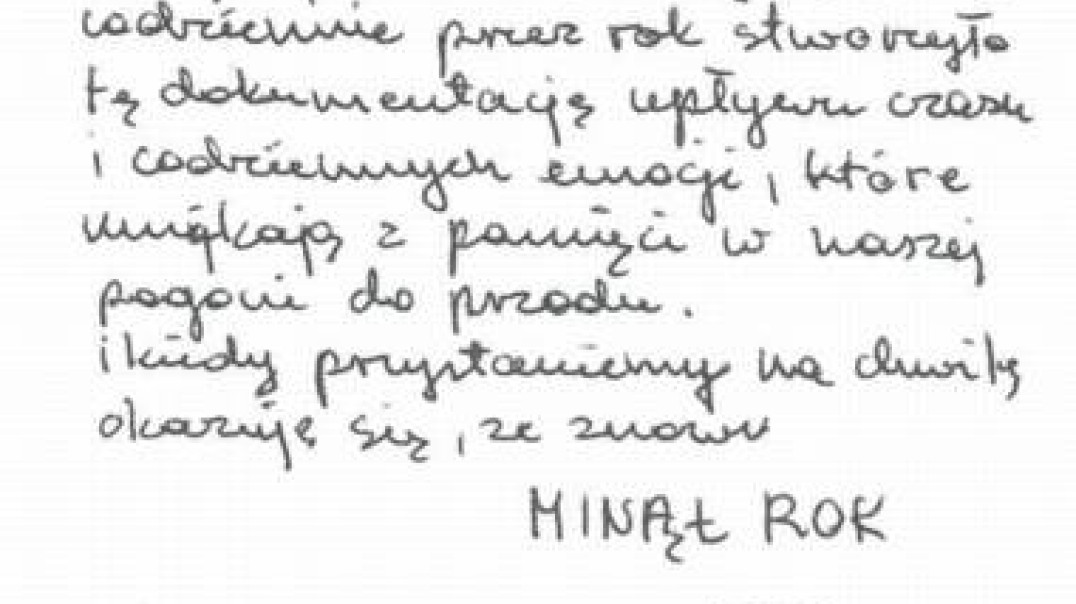 codziennie przez rok stworzyło
tę dokumentację upływu czasu
i codziennych emocji, które
umykają z pamięci w naszej
pogoni do przodu.
i kiedy przystaniemy na chwilę
okazuje się, że znowu
MINĄŁ ROK